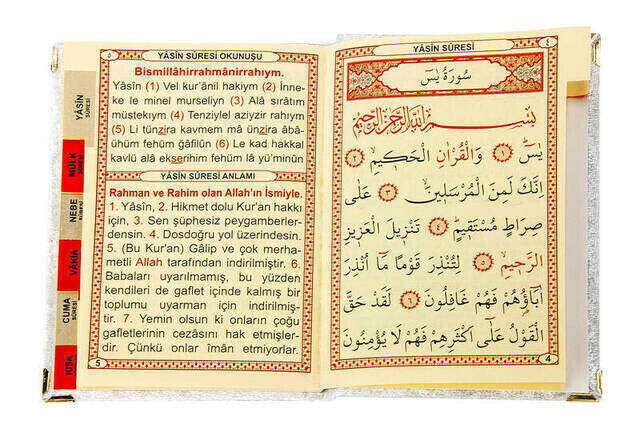 YÂSİN SÛRESİ
MÜLK
SÛRESİ
NEBE
SÛRESİ
VÂKIA
CUMA
SÛRESİ
KISA
٥
YÂSİN SÛRESİ OKUNUŞU
Bismillâhirrahmânirrahıym.
Yâsîn (1) Vel kur'ânil hakiym (2) İnne-
ke le minel murseliyn (3) Alâ sırâtım
müstekıym (4) Tenziylel aziyzir rahıym
(5) Li tünzira kavmem mâ ünzira âbâ-
ühüm fehüm ğâfilûn (6) Le kad hakkal
kavlü alâ ekserihim fehüm lâ yü'minûn
YÂSİN SÛRESİ ANLAMI
Rahman ve Rahim olan Allah'ın İsmiyle.
1. Yâsîn, 2. Hikmet dolu Kur'an hakkı
için, 3. Sen şüphesiz peygamberler-
densin. 4. Dosdoğru yol üzerindesin.
5. (Bu Kur'an) Gâlip ve çok merha-
metli Allah tarafından indirilmiştir. 6.
Babaları uyarılmamış, bu yüzden
kendileri de gaflet içinde kalmış bir
toplumu uyarman için indirilmiş-
tir. 7. Yemin olsun ki onların çoğu
gafletlerinin cezasını hak etmişler-
dir. Çünkü onlar îmân etmiyorlar.
5
YÂSİN SÛRESİ
٤
سُورَةُ يٰسٓ
بِسْمِ اللّٰهِ الرَّحْمٰنِ الرَّحِيمِ
يٰسٓ ﴿١﴾ وَالْقُرْاٰنِ الْحَكِيمِ ﴿٢﴾
اِنَّكَ لَمِنَ الْمُرْسَلِينَ ﴿٣﴾ عَلٰى
صِرَاطٍ مُسْتَقِيمٍ ﴿٤﴾ تَنْزِيلَ الْعَزِيزِ
الرَّحِيمِ ﴿٥﴾ لِتُنْذِرَ قَوْمًا مَٓا اُنْذِرَ
اٰبَٓاؤُهُمْ فَهُمْ غَافِلُونَ ﴿٦﴾ لَقَدْ حَقَّ
الْقَوْلُ عَلٰٓى اَكْثَرِهِمْ فَهُمْ لَا يُؤْمِنُونَ
4